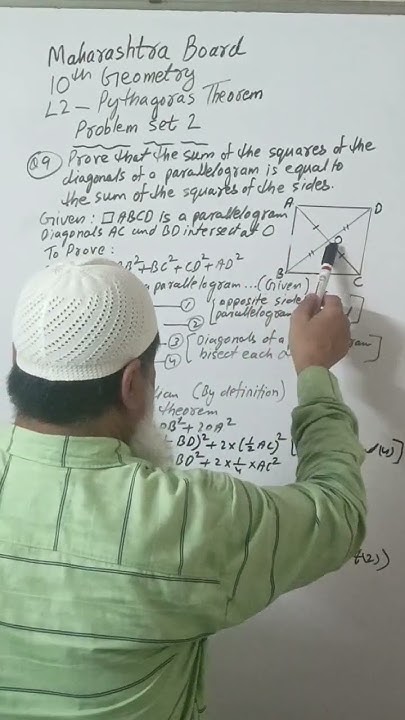 Maharashtra Board
10th Geometry
L2 - Pythagoras Theorem
Problem Set 2
Q9 Prove that the sum of the squares of the
diagonals of a parallelogram is equal to
the sum of the squares of the sides.
Given : □ABCD is a parallelogram
Diagonals AC and BD intersect at O
To Prove :
B²+BC²+CD²+AD²
a parallelogram...(Given)
1 [opposite side
parallelogram
2
3 [Diagonals of a
4 bisect each
]
(By definition)
theorem
OB²+2OA²
BD)²+2×(½AC)²
BD²+2×¼×AC²
A
D
O
B
C